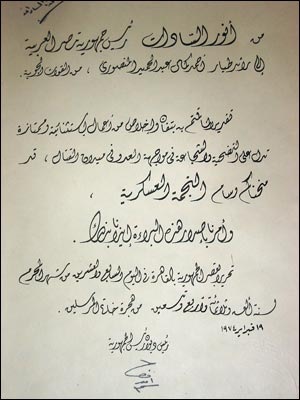 من أنور السادات رئيس جمهورية مصر العربية
إلى رائد طيار أحمد كمال عبد الحميد المنصوري ، من القوات الجوية .
تقديرا لما قمتم به بتفان وإخلاص من أعمال استثنائية وممتازة
تدل على التضحية والشجاعة في مواجهة العدو في ميدان القتال ، قد
منحناكم وسام النجمة العسكرية
وأمرنا بإصدار هذه البراءة إيذانا بذلك .
تحريرا بقصر الجمهورية بالقاهرة في اليوم السابع والعشرين من شهر المحرم
لسنة ألف وثلاثمائة وأربع وتسعين من هجرة خاتم المرسلين .
١٩ فبراير ١٩٧٤
رئيس ديوان رئيس الجمهورية